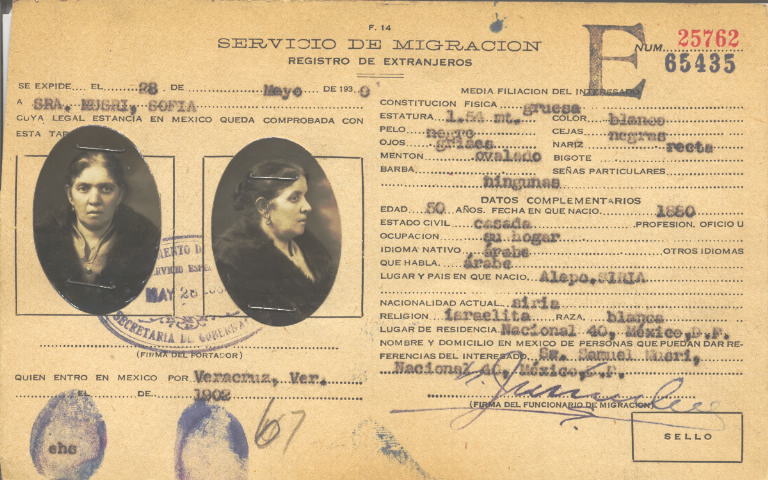 F. 14
SERVICIO DE MIGRACION
REGISTRO DE EXTRANJEROS
E
NUM. 25762
65435
SE EXPIDE EL 28 DE Mayo DE 1930
A SRA. MUSRI, SOFIA
CUYA LEGAL ESTANCIA EN MEXICO QUEDA COMPROBADA CON
ESTA TAR
MAY 28
SECRETARIA DE GOBERNA
(FIRMA DEL PORTADOR)
QUIEN ENTRO EN MEXICO POR Veracruz, Ver.
EL DE 1902
ehs
67
MEDIA FILIACION DEL INTERESADO
CONSTITUCION FISICA gruesa
ESTATURA 1.54 mt. COLOR blanco
PELO negro CEJAS negras
OJOS grises NARIZ recta
MENTON ovalado BIGOTE
BARBA SEÑAS PARTICULARES
ningunas
DATOS COMPLEMENTARIOS
EDAD 50 AÑOS. FECHA EN QUE NACIO 1880
ESTADO CIVIL casada PROFESION, OFICIO U
OCUPACION su hogar
IDIOMA NATIVO árabe OTROS IDIOMAS
QUE HABLA árabe
LUGAR Y PAIS EN QUE NACIO Alepo, SIRIA
NACIONALIDAD ACTUAL siria
RELIGION israelita RAZA blanca
LUGAR DE RESIDENCIA Nacional 40, México, D.F.
NOMBRE Y DOMICILIO EN MEXICO DE PERSONAS QUE PUEDAN DAR RE-
FERENCIAS DEL INTERESADO Sr. Samuel Musri,
Nacional 40, México, D.F.
(FIRMA DEL FUNCIONARIO DE MIGRACION)
SELLO